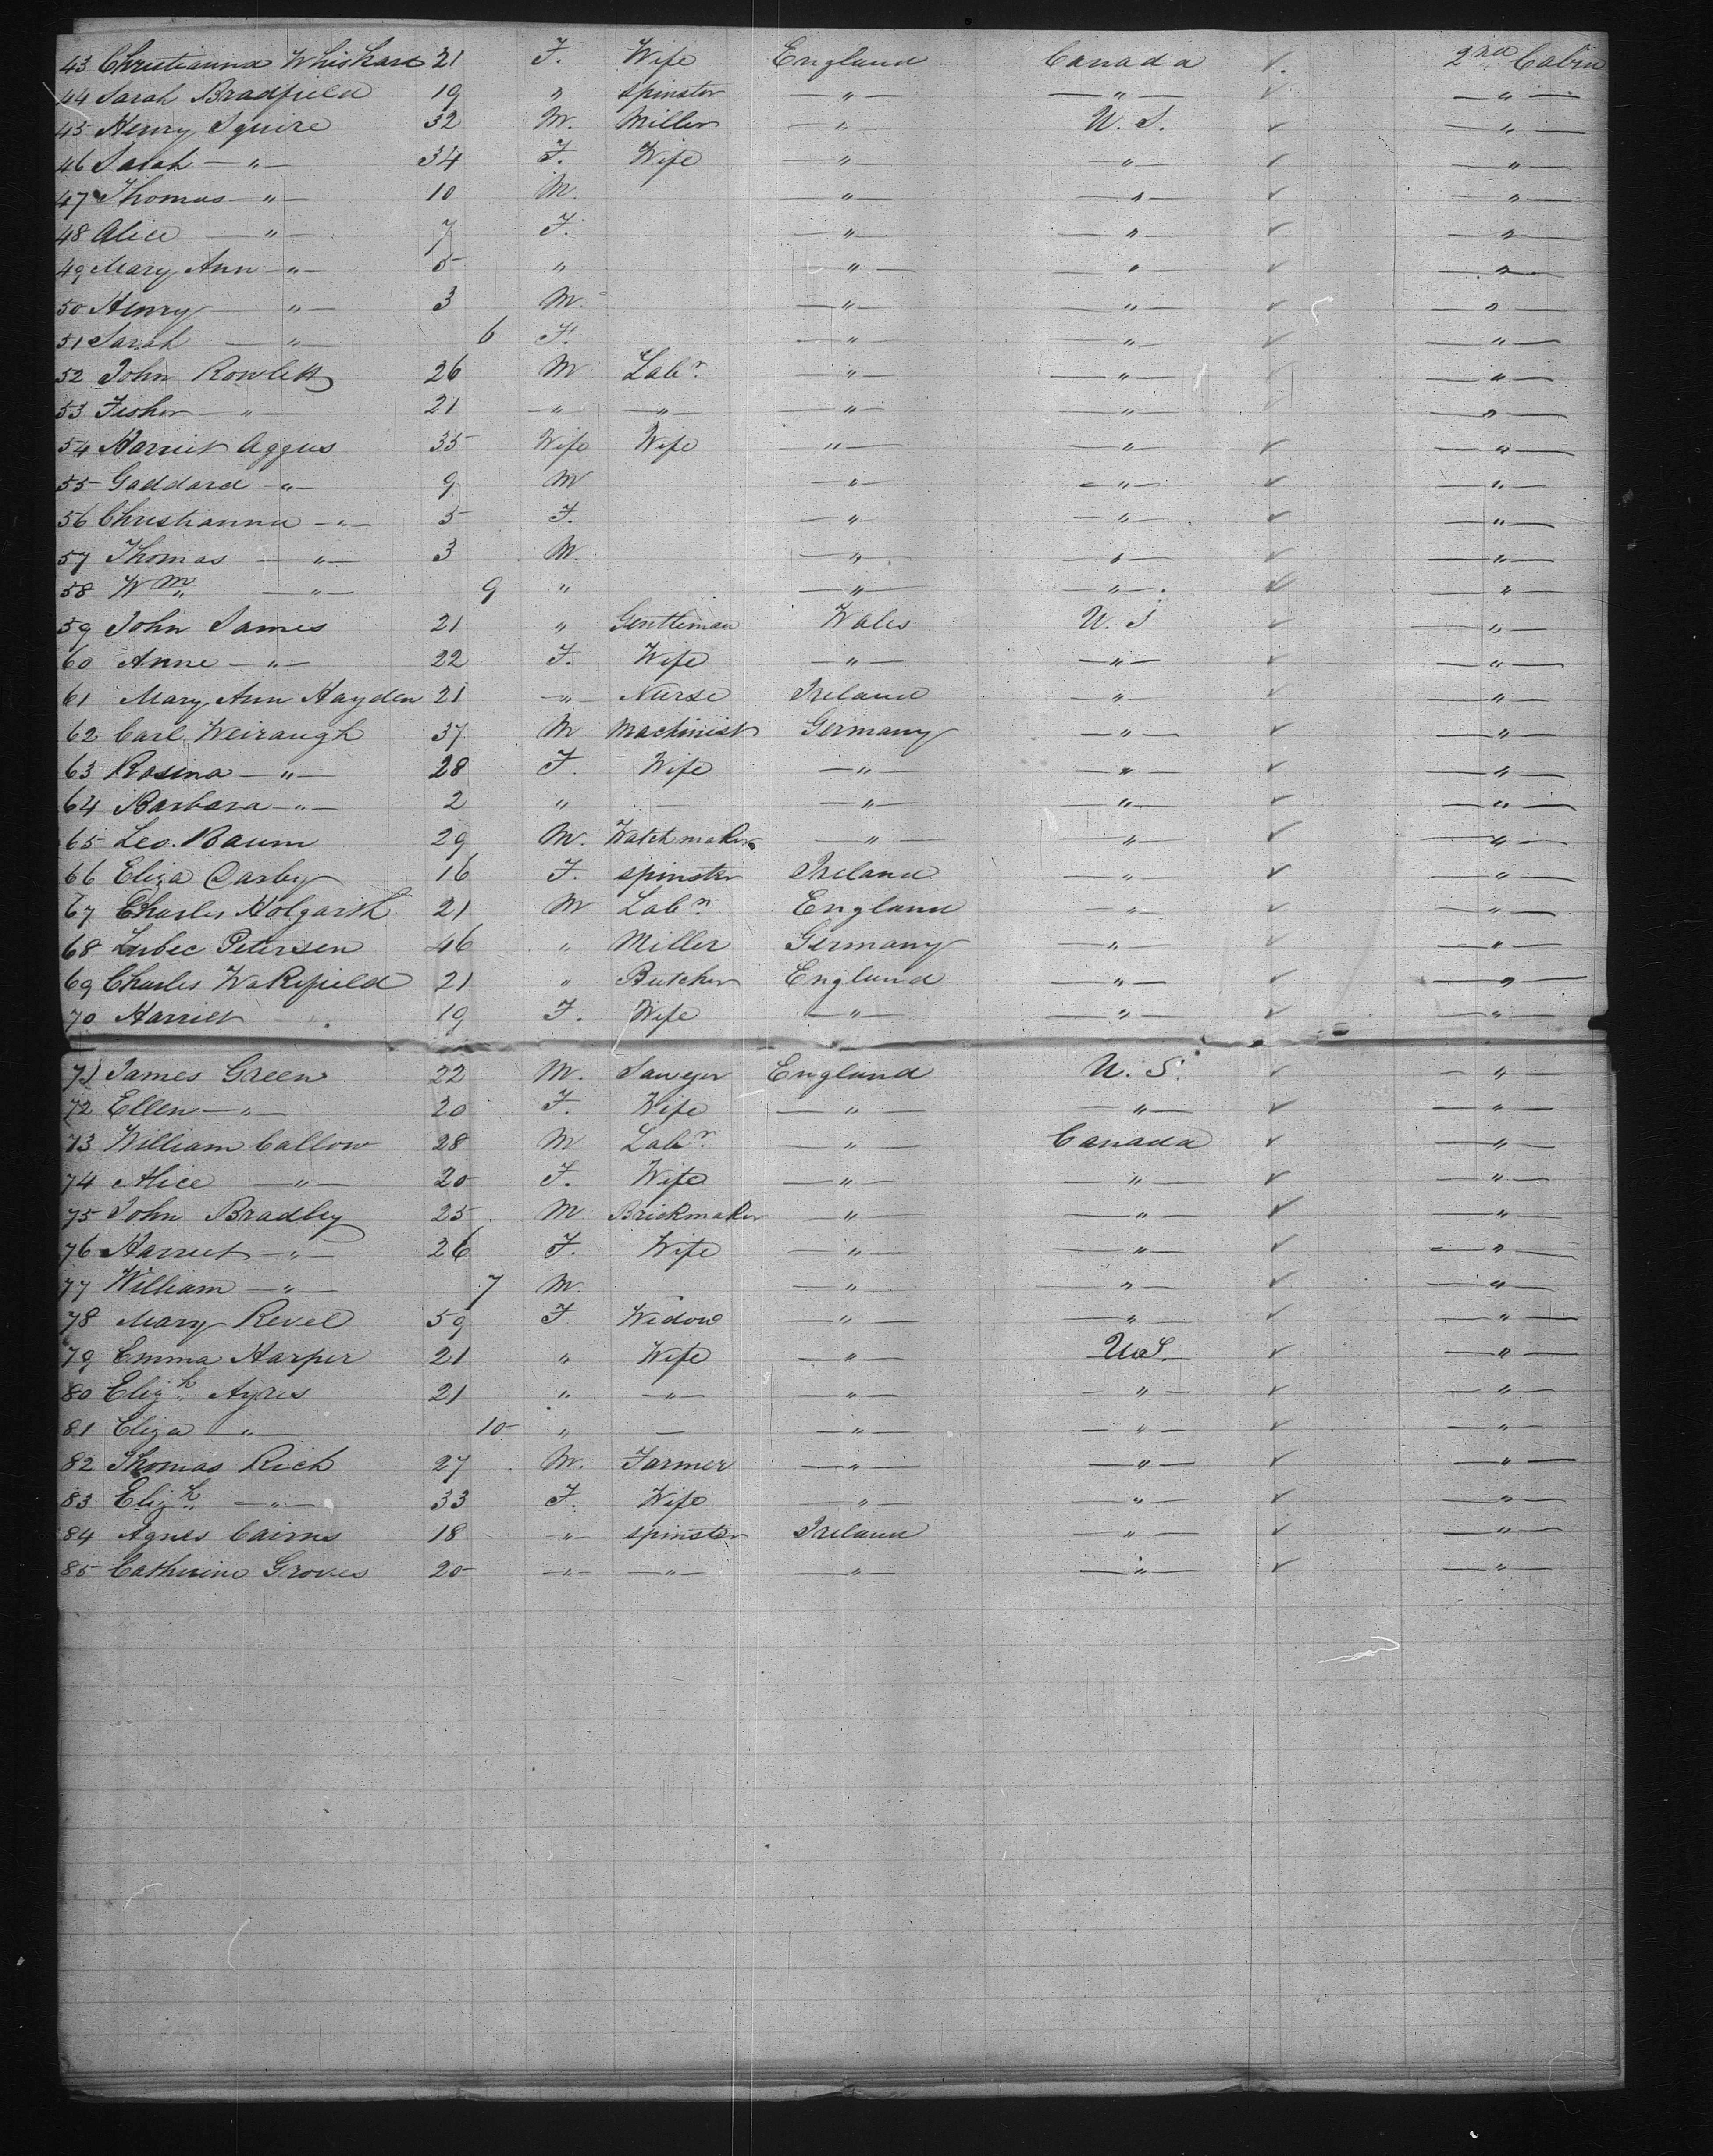 43 Christianna Whiskard 21 F. Wife England Canada ✓. 2nd Cabin
44 Sarah Bradfield 19 " spinster — " — — " — ✓ — " —
45 Henry Squire 32 M. Miller — " — U. S. ✓ — " —
46 Sarah — " — 34 F. Wife — " — — " — ✓ — " —
47 Thomas — " — 10 M. — " — — " — ✓ — " —
48 Alice — " — 7 F. — " — — " — ✓ — " —
49 Mary Ann — " — 5 " — " — — " — ✓ — " —
50 Henry — " — 3 M. — " — — " — ✓ — " —
51 Sarah — " — 6 F. — " — — " — ✓ — " —
52 John Rowlett 26 M Labr. — " — — " — ✓ — " —
53 Fisher — " — 21 — " — — " — — " — — " — ✓ — " —
54 Harriet Aggus 35 Wife Wife — " — — " — ✓ — " —
55 Goddard — " — 9 M — " — — " — ✓ — " —
56 Christianna — " — 5 F. — " — — " — ✓ — " —
57 Thomas — " — 3 M. — " — — " — ✓ — " —
58 Wm — " — 9 " — " — — " — ✓ — " —
59 John James 21 " Gentleman Wales U. S ✓ — " —
60 Anne — " — 22 F. Wife — " — — " — ✓ — " —
61 Mary Ann Hayden 21 — " — Nurse Ireland — " — ✓ — " —
62 Carl Weiraugh 37 M Machinist Germany — " — ✓ — " —
63 Rosina — " — 28 F. Wife — " — — " — ✓ — " —
64 Barbara — " — 2 " — — " — — " — ✓ — " —
65 Leo. Baum 29 M. Watchmaker — " — — " — ✓ — " —
66 Eliza Darby 16 F. spinster Ireland — " — ✓ — " —
67 Charles Holgarth 21 M Labr. England — " — ✓ — " —
68 Lubec Petersen 46 " Miller Germany — " — ✓ — " —
69 Charles Wakefield 21 " Butcher England — " — ✓ — " —
70 Harriet — " — 19 F. Wife — " — — " — ✓ — " —
71 James Green 22 M. Sawyer England U. S. ✓ — " —
72 Ellen — " — 20 F. Wife — " — — " — ✓ — " —
73 William Callow 28 M Labr. — " — Canada ✓ — " —
74 Alice — " — 20 F. Wife — " — — " — ✓ — " —
75 John Bradley 25 M Brickmaker — " — — " — ✓ — " —
76 Harriet — " — 26 F. Wife — " — — " — ✓ — " —
77 William — " — 7 M. — " — — " — ✓ — " —
78 Mary Revel 59 F Widow — " — — " — ✓ — " —
79 Emma Harper 21 " Wife — " — U.S. ✓ — " —
80 Elizh Ayres 21 " — " — — " — — " — ✓ — " —
81 Eliza — " — 10 " — — " — — " — ✓ — " —
82 Thomas Rich 27 M. Farmer — " — — " — ✓ — " —
83 Elizh — " — 33 F. Wife — " — — " — ✓ — " —
84 Agnes Cairns 18 — " — spinster Ireland — " — ✓ — " —
85 Catherine Groves 20 — " — — " — — " — — " — ✓ — " —